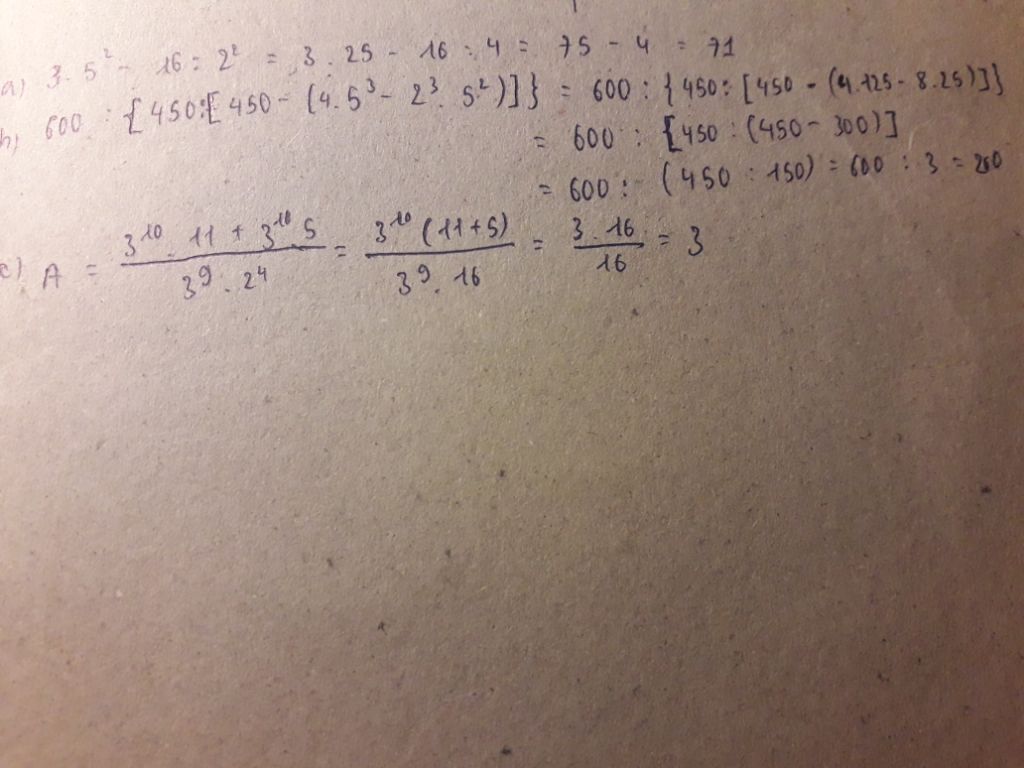 a) 3 . 5² - 16 : 2² = 3 . 25 - 16 : 4 = 75 - 4 = 71
b) 600 : {450:[450 - (4. 5³ - 2³. 5²)]} = 600 : {450: [450 - (4.125 - 8.25)]}
= 600 : [450 : (450 - 300)]
= 600 : (450 : 150) = 600 : 3 = 200
c) A = (3¹⁰. 11 + 3¹⁰.5)/(3⁹. 2⁴) = (3¹⁰ (11+5))/(3⁹. 16) = (3 . 16)/16 = 3